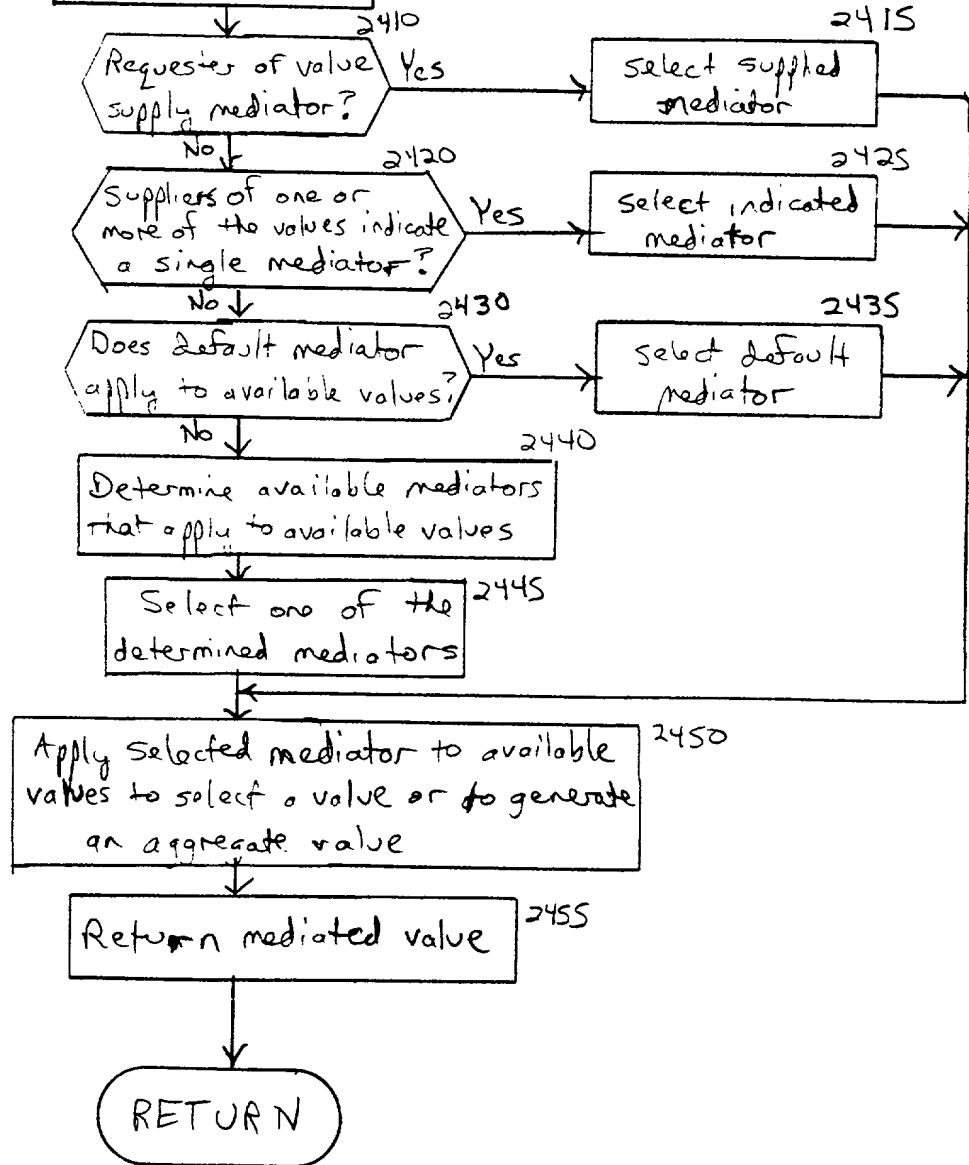 2410
Requester of value
supply mediator?
Yes
2415
select supplied
mediator
No
2420
Suppliers of one or
more of the values indicate
a single mediator?
Yes
2425
select indicated
mediator
No
2430
Does default mediator
apply to available values?
Yes
2435
select default
mediator
No
2440
Determine available mediators
that apply to available values
2445
Select one of the
determined mediators
2450
Apply selected mediator to available
values to select a value or to generate
an aggregate value
2455
Return mediated value
RETURN